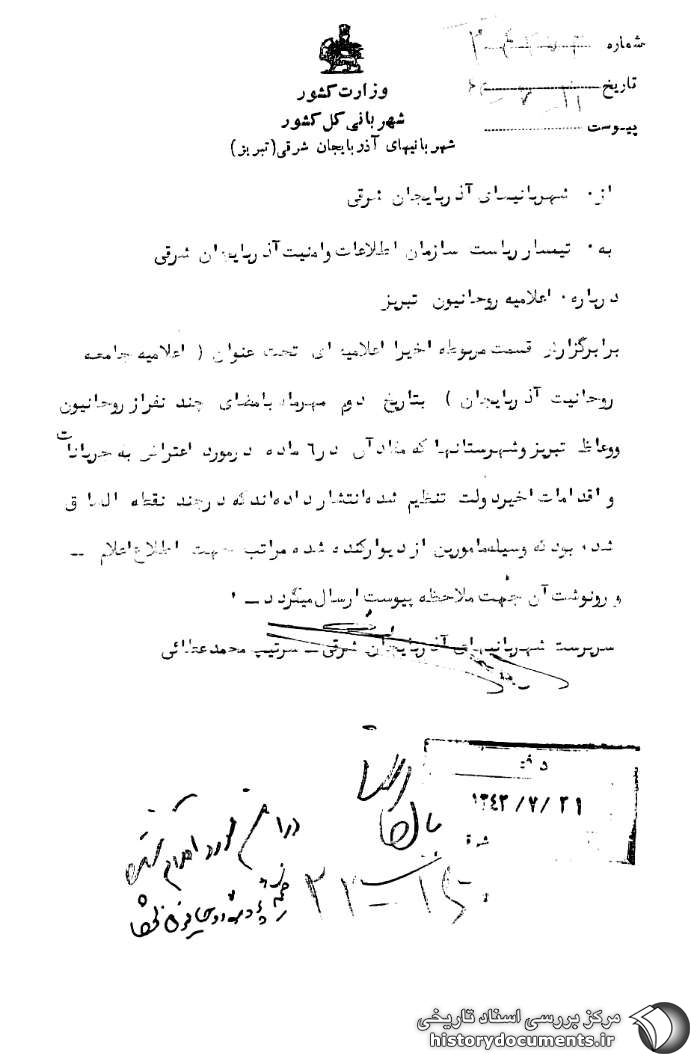 شماره
تاریخ
پیوست
وزارت کشور
شهربانی کل کشور
شهربانیهای آذربایجان شرقی (تبریز)
از۰ شهربانیهای آذربایجان شرقی
به۰ تیمسار ریاست سازمان اطلاعات وامنیت آذربایجان شرقی
درباره۰ اعلامیه روحانیون تبریز
برابرگزارش قسمت مربوطه اخیرا اعلامیه ای تحت عنوان ( اعلامیه جامعه
روحانیت آذربایجان ) بتاریخ دوم مهرماه بامضای چند نفراز روحانیون
ووعاظ تبریز وشهرستانها که مفادآن در٦ ماده درمورد اعتراض به جریانات
و اقدامات اخیردولت تنظیم شده انتشار داده اند که درچند نقطه الصاق
شده بود که وسیله مامورین از دیوارکنده شده مراتب جهت اطلاع اعلام ــ
و رونوشت آن جهت ملاحظه پیوست ارسال میگردد ــ
سرپرست شهربانیهای آذربایجان شرقی ــ سرتیپ محمدعطائی
۱۳۴۳/۷/۲۱
مرکز بررسی اسناد تاریخی
historydocuments.ir